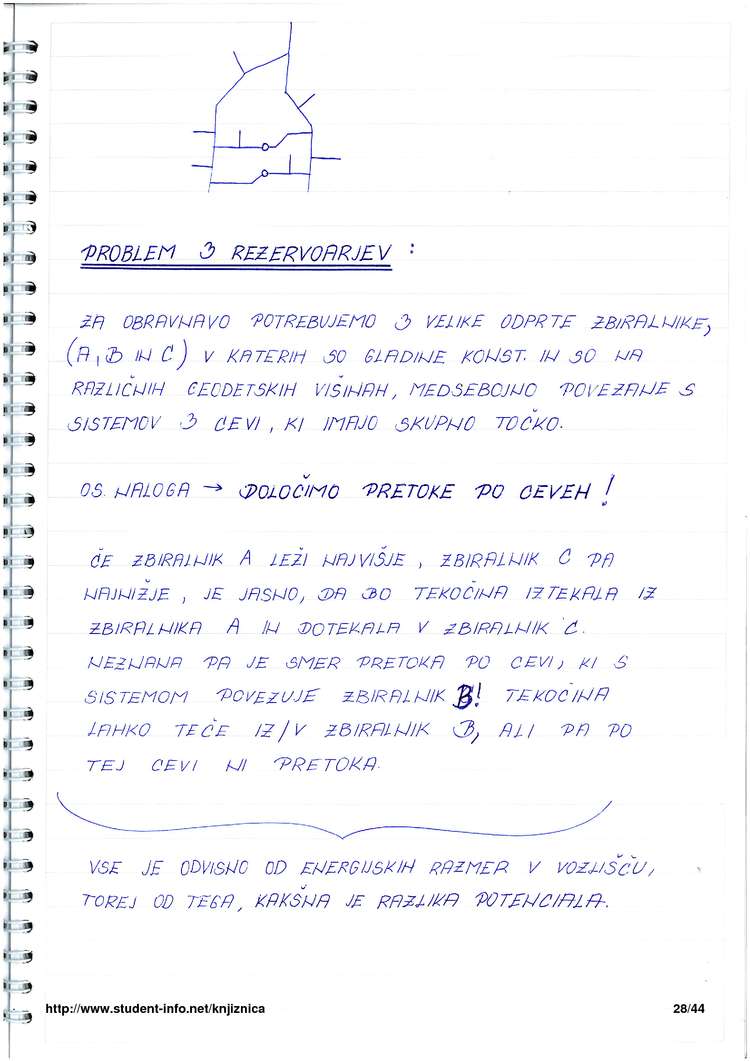 PROBLEM 3 REZERVOARJEV :
ZA OBRAVNAVO POTREBUJEMO 3 VELIKE ODPRTE ZBIRALNIKE,
(A, B IN C) V KATERIH SO GLADINE KONST. IN SO NA
RAZLIČNIH GEODETSKIH VIŠINAH, MEDSEBOJNO POVEZANE S
SISTEMOV 3 CEVI, KI IMAJO SKUPNO TOČKO.
OS. NALOGA → DOLOČIMO PRETOKE PO CEVEH!
ČE ZBIRALNIK A LEŽI NAJVIŠJE, ZBIRALNIK C PA
NAJNIŽJE, JE JASNO, DA BO TEKOČINA IZTEKALA IZ
ZBIRALNIKA A IN DOTEKALA V ZBIRALNIK C.
NEZNANA PA JE SMER PRETOKA PO CEVI, KI S
SISTEMOM POVEZUJE ZBIRALNIK B! TEKOČINA
LAHKO TEČE IZ/V ZBIRALNIK B, ALI PA PO
TEJ CEVI NI PRETOKA.
VSE JE ODVISNO OD ENERGIJSKIH RAZMER V VOZLIŠČU,
TOREJ OD TEGA, KAKŠNA JE RAZLIKA POTENCIALA.
http://www.student-info.net/knjiznica
28/44